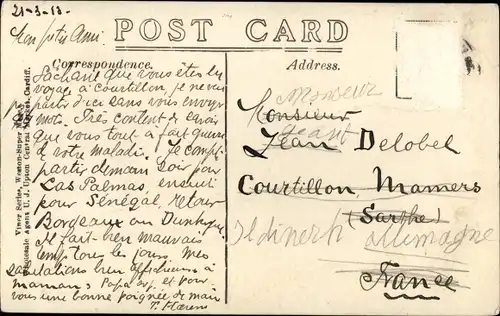 21-3-13.
Mon petit Ami.
POST CARD
Correspondence.
Address.
Sachant que vous êtes en
voyage à Courtillon, je ne veux
partir d'ici sans vous envoyer
mot. Très content de savoir
que vous tout à fait guéri
de votre maladi. Je compte
partir demain soir pour
Las Palmas, ensuite
pour Sénégal, Retour
Bordeaux ou Dunkque.
Il fait bien mauvais
temps tous les jours. Mes
salutations bien affectueuses à
maman, Papa et pour
vous une bonne poignée de main
Monsieur
Monsieur
Jean Delobel
Courtillon, Mamers
(Sarthe)
Allemagne
France
Series, Weston-Super-
Agent U. J. Upton, Central Cardiff.